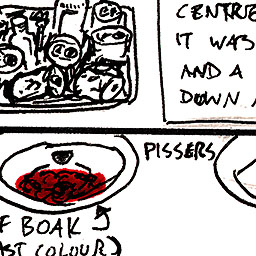 CENTRE
IT WAS
AND A
DOWN
PISSERS
F BOAK
AST COLOUR)